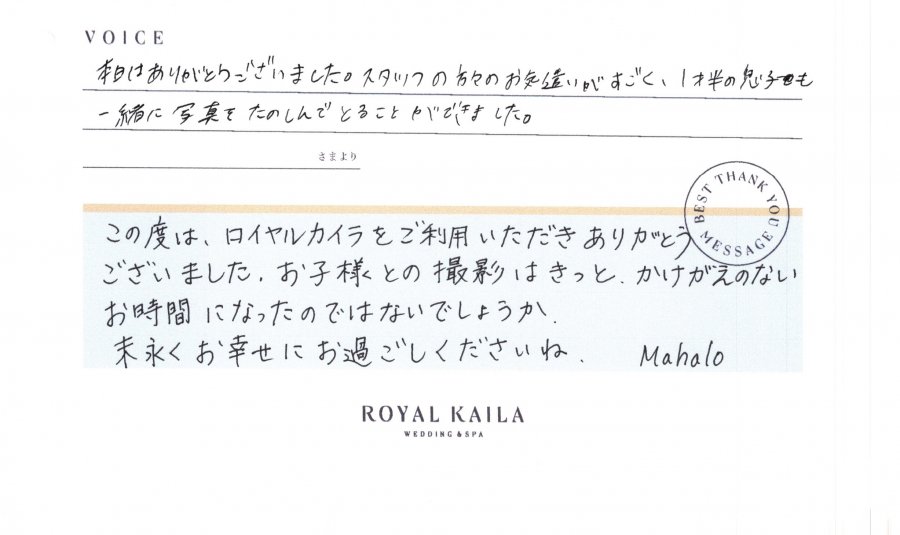 VOICE
本日はありがとうございました。スタッフの方々のお気遣いがすごく、1才半の息子とも
一緒に写真をたのしんでとることができました。
さまより
BEST THANK YOU MESSAGE
この度は、ロイヤルカイラをご利用いただきありがとう
ございました。お子様との撮影はきっと、かけがえのない
お時間になったのではないでしょうか。
末永くお幸せにお過ごしくださいね。 Mahalo
ROYAL KAILA
WEDDING & SPA